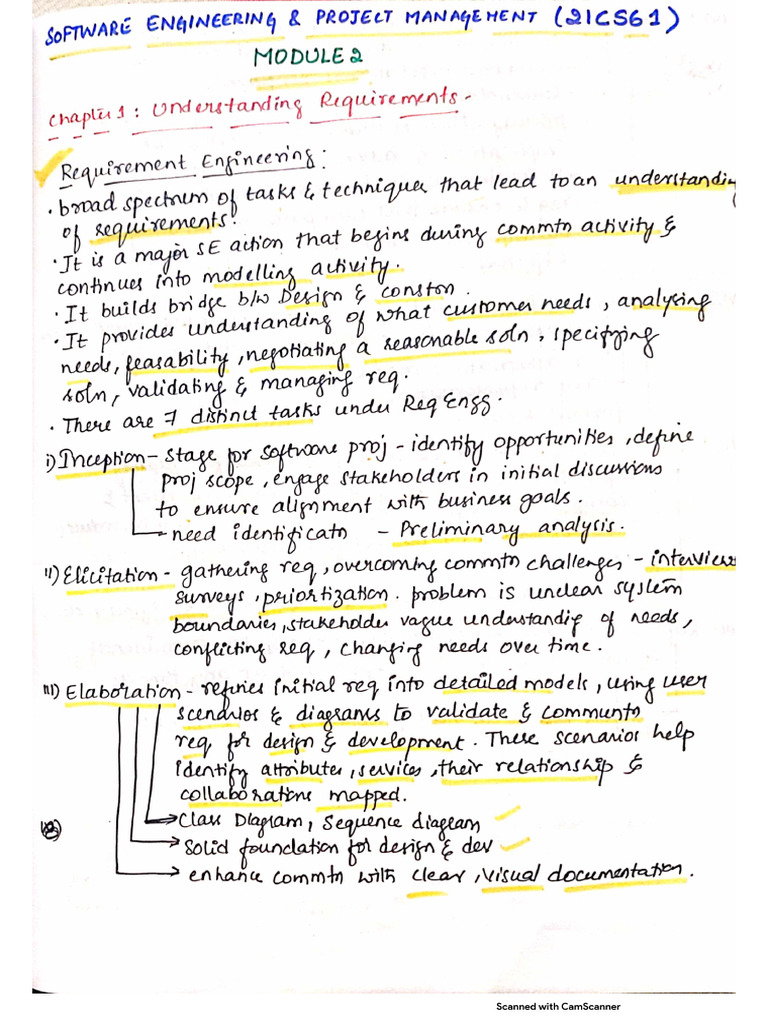 SOFTWARE ENGINEERING & PROJECT MANAGEMENT (21CS61)
MODULE 2
Chapter 1 : Understanding Requirements -
Requirement Engineering :
• broad spectrum of tasks & techniques that lead to an understandin
of requirements.
• It is a major SE action that begins during commtn activity &
continues into modelling activity.
• It builds bridge b/w Design & constcn.
• It provides understanding of what customer needs, analysing
needs, feasability, negotiating a reasonable soln, specifying
soln, validating & managing req.
• There are 7 distinct tasks under Req Engg.
i) Inception - stage for software proj - identify opportunities, define
proj scope, engage stakeholders in initial discussions
to ensure alignment with business goals.
need identificatn - Preliminary analysis.
ii) Elicitation - gathering req, overcoming commtn challenges - interviews
surveys, priortization. problem is unclear system
boundaries, stakeholder vague understandig of needs,
conflicting req, changing needs over time.
iii) Elaboration - refines initial req into detailed models, using user
scenarios & diagrams to validate & communtn
req for design & development. These scenarios help
identify attributes, services, their relationship &
collaborations mapped.
Class Diagram, Sequence diagram
Solid foundation for design & dev
enhance commtn with clear, visual documentation.
Scanned with CamScanner